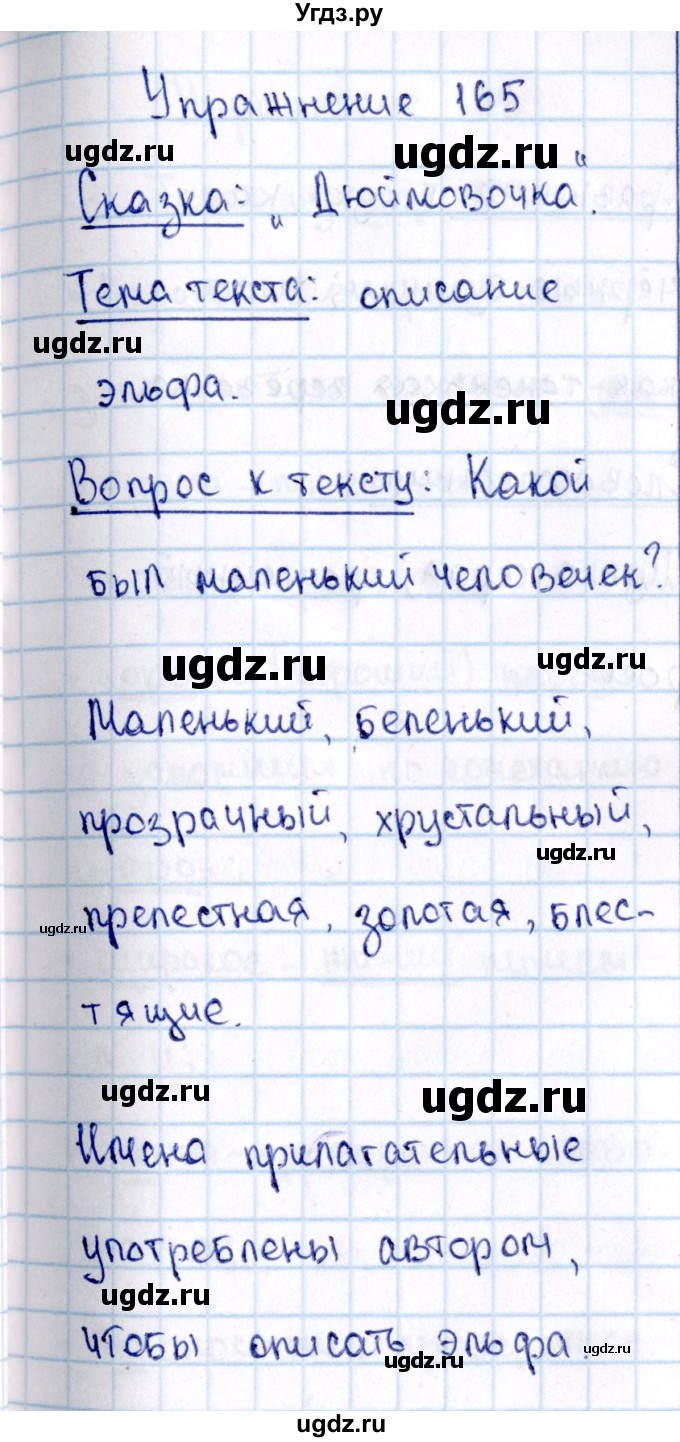 Угдз.ру
Упражнение 165
ugdz.ru ugdz.ru
Сказка: „Дюймовочка".
Тема текста: описание
ugdz.ru
эльфа. ugdz.ru
Вопрос к тексту: Какой
был маленький человечек?
ugdz.ru ugdz.ru
Маленький, беленький,
прозрачный, хрустальный,
ugdz.ru
ugdz.ru прелестная, золотая, блес-
тящие.
ugdz.ru ugdz.ru
Имена прилагательные
употреблены автором,
ugdz.ru
чтобы описать эльфа. ugdz.ru
ugdz.ru
ugdz.ru